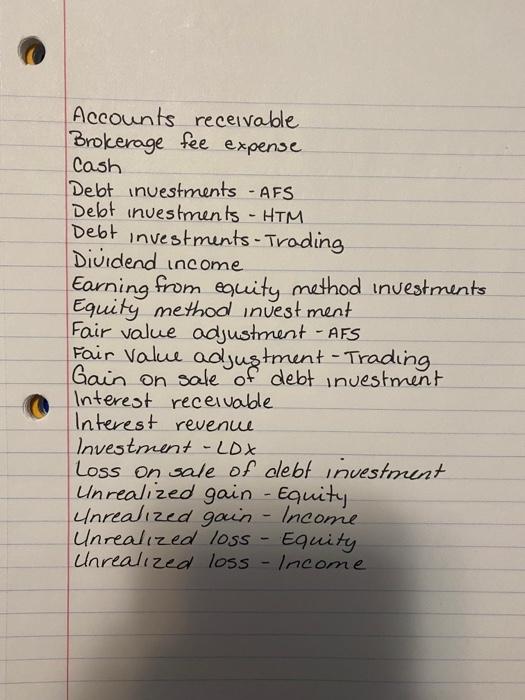 Accounts receivable
Brokerage fee expense
Cash
Debt investments - AFS
Debt investments - HTM
Debt investments - Trading
Dividend income
Earning from equity method investments
Equity method investment
Fair value adjustment - AFS
Fair Value adjustment - Trading
Gain on sale of debt investment
Interest receivable
Interest revenue
Investment - LDX
Loss on sale of debt investment
Unrealized gain - Equity
Unrealized gain - Income
Unrealized loss - Equity
Unrealized loss - Income